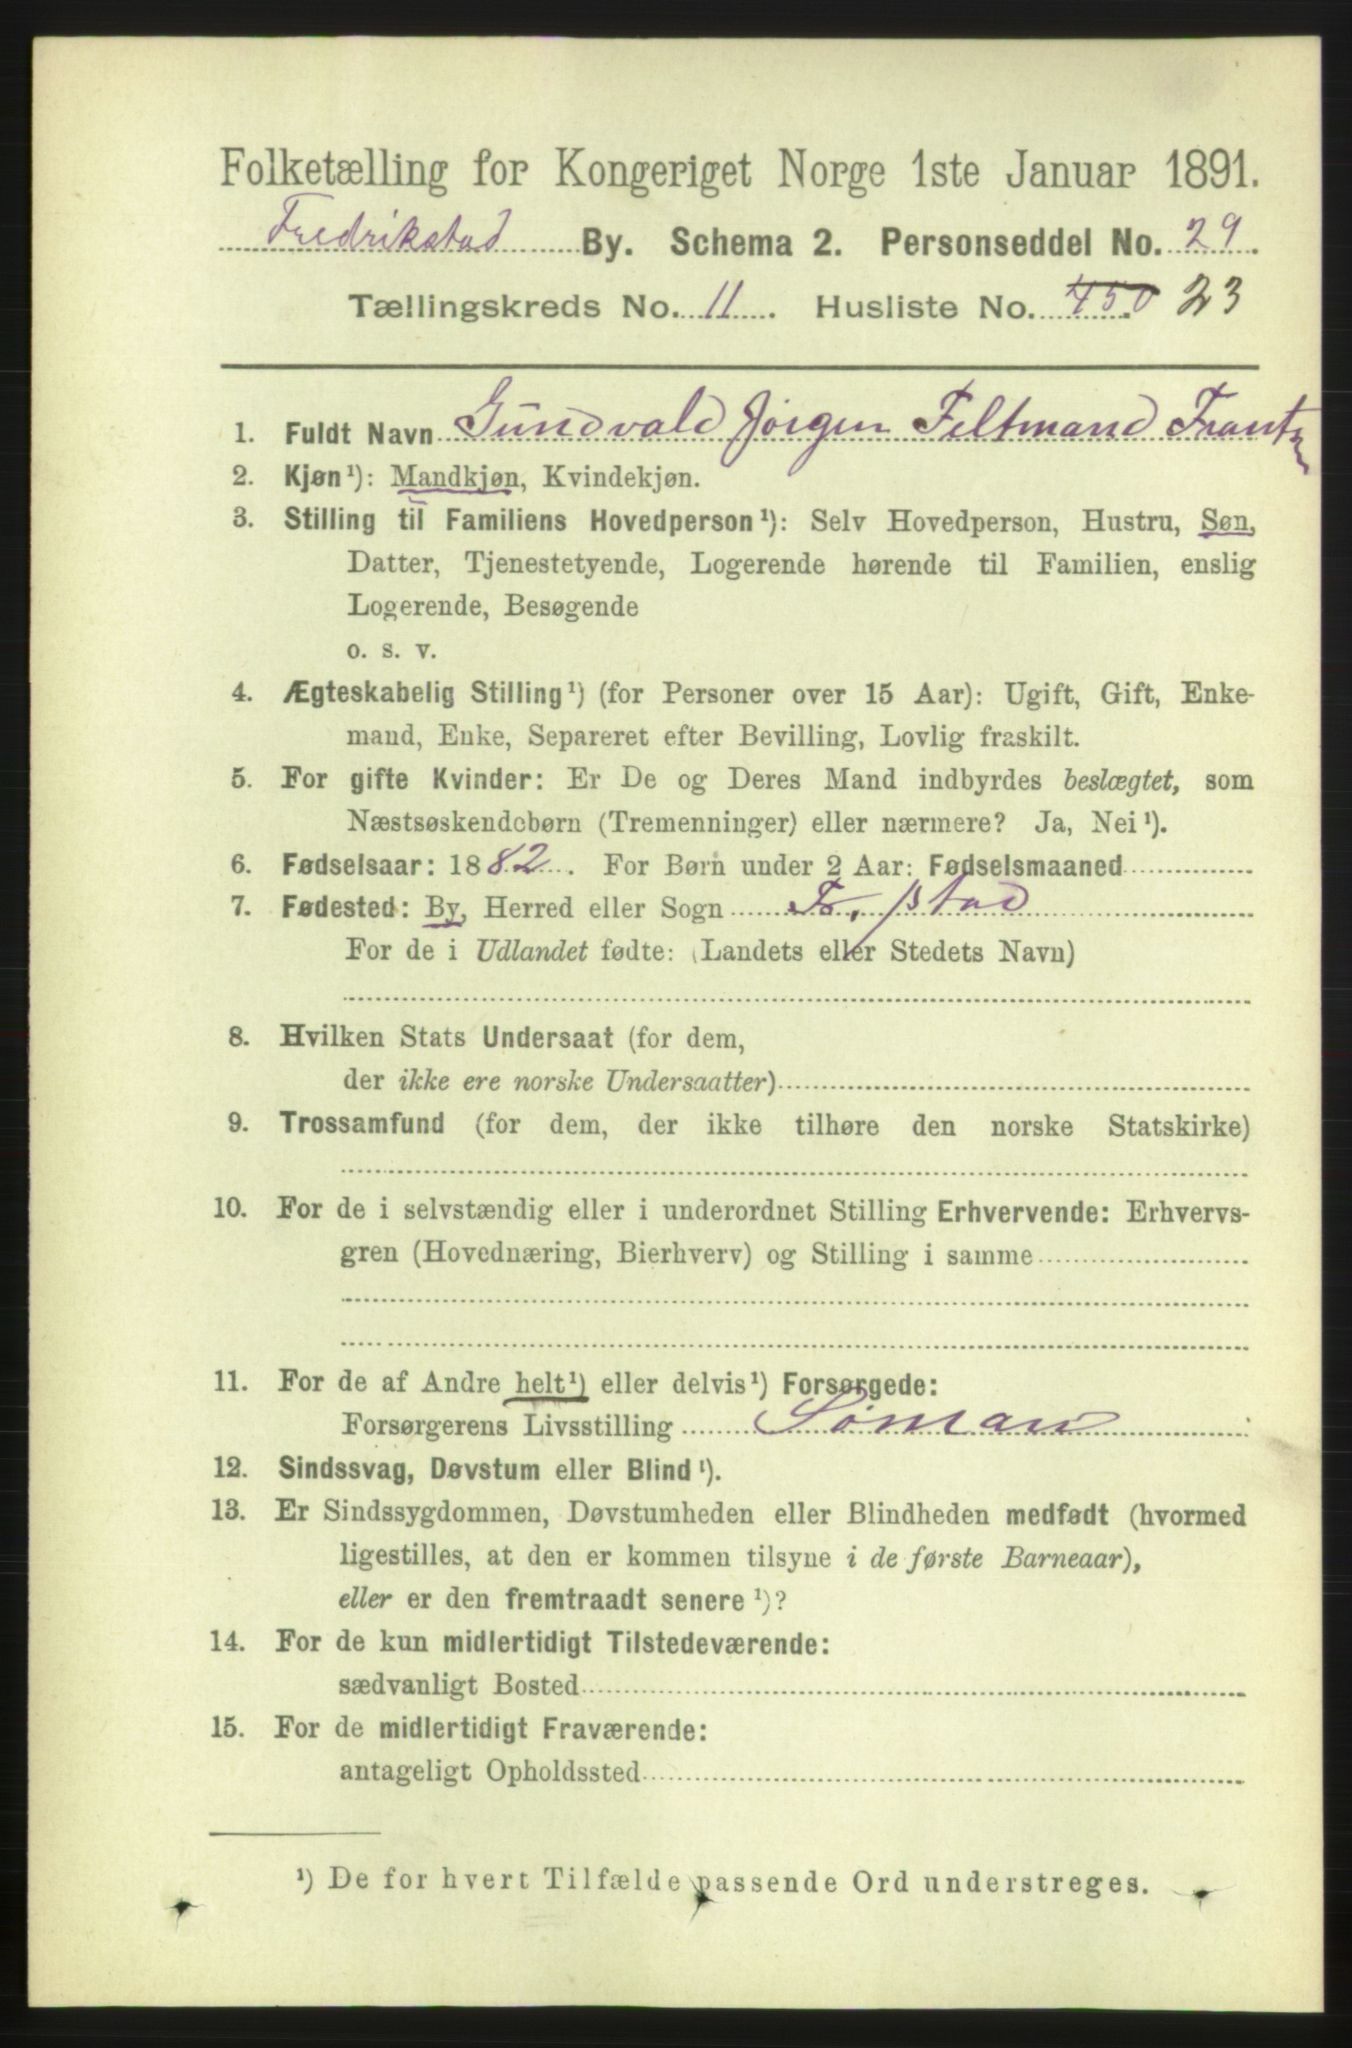 Folketælling for Kongeriget Norge 1ste Januar 1891.
Fredrikstad By. Schema 2. Personseddel No. 29.
Tællingskreds No. 11. Husliste No. 450 23
1. Fuldt Navn Gundvald Jörgen Feltmand Frantzen
2. Kjøn¹): Mandkjøn, Kvindekjøn.
3. Stilling til Familiens Hovedperson¹): Selv Hovedperson, Hustru, Søn,
Datter, Tjenestetyende, Logerende hørende til Familien, enslig
Logerende, Besøgende
o. s. v.
4. Ægteskabelig Stilling¹) (for Personer over 15 Aar): Ugift, Gift, Enke-
mand, Enke, Separeret efter Bevilling, Lovlig fraskilt.
5. For gifte Kvinder: Er De og Deres Mand indbyrdes beslægtet, som
Næstsøskendebørn (Tremenninger) eller nærmere? Ja, Nei¹).
6. Fødselsaar: 1882. For Børn under 2 Aar: Fødselsmaaned
7. Fødested: By, Herred eller Sogn Fr. stad
For de i Udlandet fødte: (Landets eller Stedets Navn)
8. Hvilken Stats Undersaat (for dem,
der ikke ere norske Undersaatter)
9. Trossamfund (for dem, der ikke tilhøre den norske Statskirke)
10. For de i selvstændig eller i underordnet Stilling Erhvervende: Erhvervs-
gren (Hovednæring, Bierhverv) og Stilling i samme
11. For de af Andre helt¹) eller delvis¹) Forsørgede:
Forsørgerens Livsstilling Sömand
12. Sindssvag, Døvstum eller Blind¹).
13. Er Sindssygdommen, Døvstumheden eller Blindheden medfødt (hvormed
ligestilles, at den er kommen tilsyne i de første Barneaar),
eller er den fremtraadt senere¹)?
14. For de kun midlertidigt Tilstedeværende:
sædvanligt Bosted
15. For de midlertidigt Fraværende:
antageligt Opholdssted
¹) De for hvert Tilfælde passende Ord understreges.